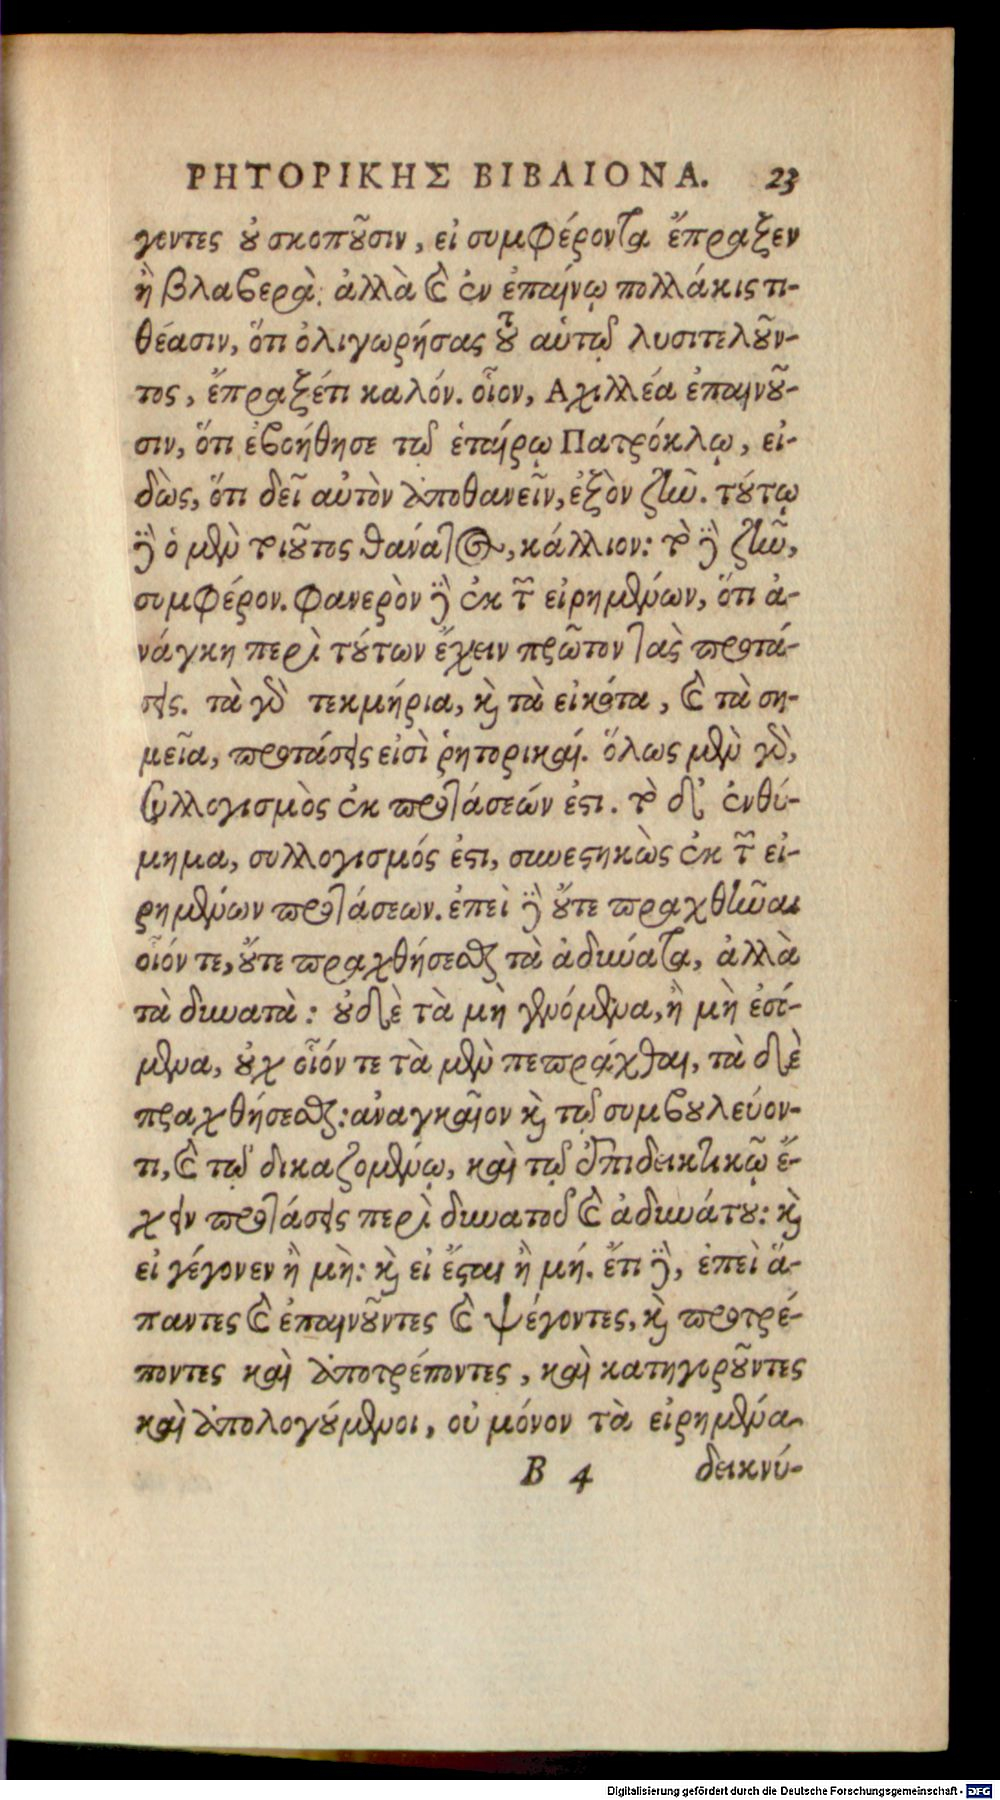 ΡΗΤΟΡΙΚΗΣ ΒΙΒΛΙΟΝ Α. 23
γοντες οὐ σκοποῦσιν, εἰ συμφέροντα ἔπραξεν
ἢ βλαβερὰ: ἀλλὰ καὶ ἐν ἐπαίνῳ πολλάκις τι-
θέασιν, ὅτι ὀλιγωρήσας τοῦ αὑτῷ λυσιτελοῦν-
τος, ἔπραξέ τι καλόν. οἷον, Ἀχιλλέα ἐπαινοῦ-
σιν, ὅτι ἐβοήθησε τῷ ἑταίρῳ Πατρόκλῳ, εἰ-
δὼς, ὅτι δεῖ αὐτὸν ἀποθανεῖν, ἐξὸν ζῆν. τούτῳ
δὲ ὁ μὲν τοιοῦτος θάνατος, κάλλιον: τὸ δὲ ζῆν,
συμφέρον. Φανερὸν δὲ ἐκ τῶν εἰρημένων, ὅτι ἀ-
νάγκη περὶ τούτων ἔχειν πρῶτον τὰς προτά-
σεις. τὰ γὰρ τεκμήρια, καὶ τὰ εἰκότα, καὶ τὰ ση-
μεῖα, προτάσεις εἰσὶ ῥητορικαί. ὅλως μὲν γὰρ,
συλλογισμὸς ἐκ προτάσεών ἐστι. τὸ δ' ἐνθύ-
μημα, συλλογισμός ἐστι, συνεστηκὼς ἐκ τῶν εἰ-
ρημένων προτάσεων. ἐπεὶ δὲ οὔτε πραχθῆναι
οἷόν τε, οὔτε πραχθήσεσθαι τὰ ἀδύνατα, ἀλλὰ
τὰ δυνατὰ: οὐδὲ τὰ μὴ γενόμενα, ἢ μὴ ἐσό-
μενα, οὐχ οἷόν τε τὰ μὲν πεπράχθαι, τὰ δὲ
πραχθήσεσθαι: ἀναγκαῖον καὶ τῷ συμβουλεύον-
τι, καὶ τῷ δικαζομένῳ, καὶ τῷ ἐπιδεικτικῷ ἔ-
χειν προτάσεις περὶ δυνατοῦ καὶ ἀδυνάτου: καὶ
εἰ γέγονεν ἢ μὴ: καὶ εἰ ἔσται ἢ μή. ἔτι δὲ, ἐπεὶ ἅ-
παντες καὶ ἐπαινοῦντες καὶ ψέγοντες, καὶ προτρέ-
ποντες καὶ ἀποτρέποντες, καὶ κατηγοροῦντες
καὶ ἀπολογούμενοι, οὐ μόνον τὰ εἰρημένα
B 4 δεικνύ-
Digitalisierung gefördert durch die Deutsche Forschungsgemeinschaft - DFG